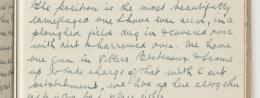 The position is the most beautifully
camouflaged one I have ever seen, in a
ploughed field dug in & covered over
with dirt & harrowed over. We have
one gun in Villers Bretonneux & I came
up to take charge of that with C sub
detachment, we live up here altogether